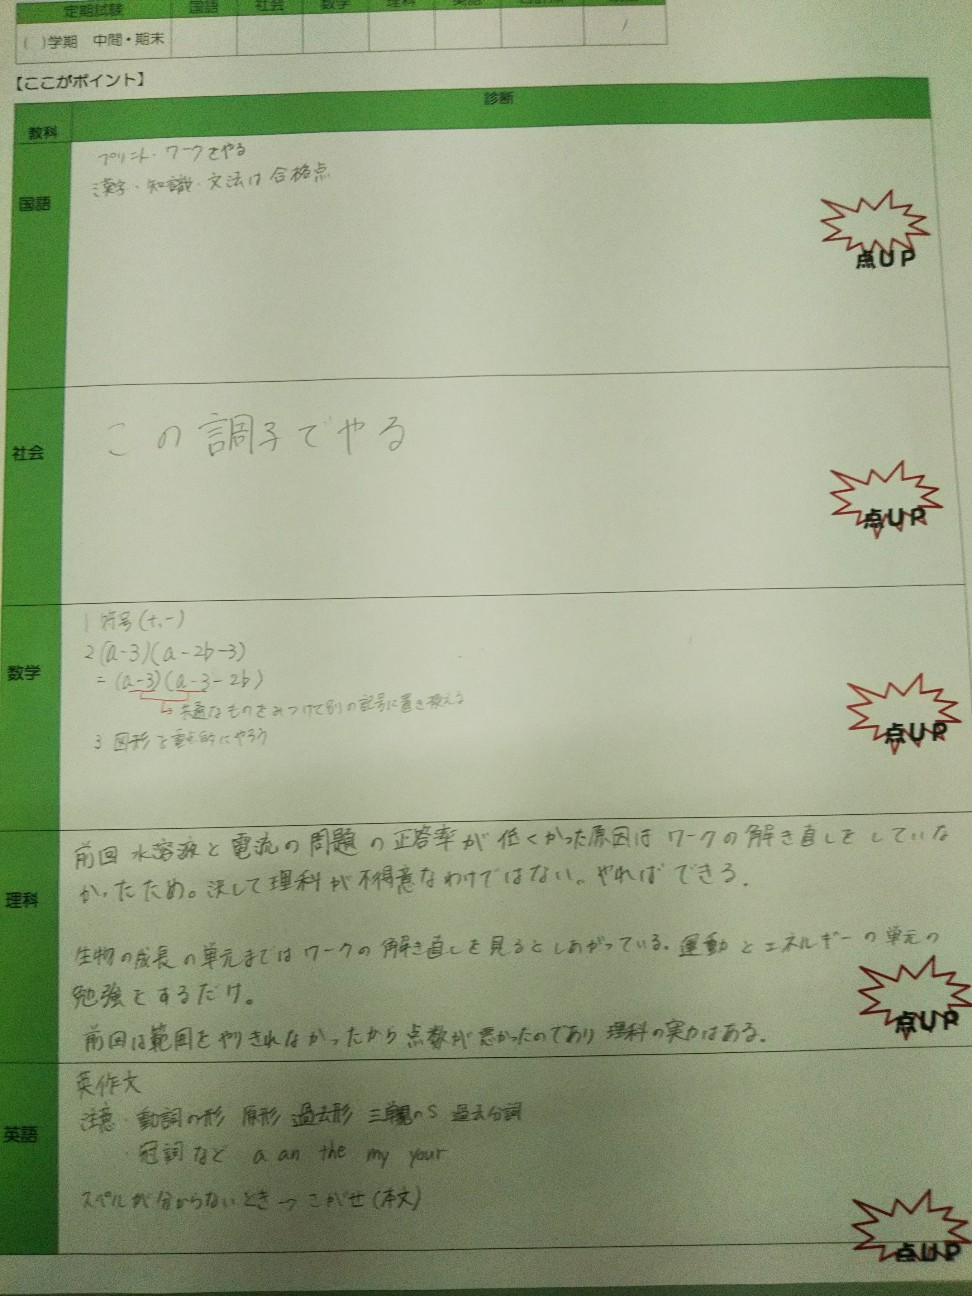 定期試験 国語 社会 数学 理科 英語
( )学期 中間・期末
【ここがポイント】
教科 診断
国語
プリント・ワークをやる
漢字・知識・文法は合格点
点UP
社会
この調子でやる
点UP
数学
1 符号(+,-)
2 (a-3)(a-2b-3)
= (a-3)(a-3-2b)
→共通なものをみつけて別の記号に置き換える
3 図形を重点的にやろう
点UP
理科
前回 水溶液と電流の問題の正答率が低くかった原因はワークの解き直しをしていな
かったため。決して理科が不得意なわけではない。やればできる。
生物の成長の単元まではワークの解き直しを見るとしあがっている。運動とエネルギーの単元の
勉強をするだけ。
前回は範囲をやりきれなかったから点数が悪かったのであり理科の実力はある。
点UP
英語
英作文
注意・動詞の形 原形 過去形 三単現のS 過去分詞
・冠詞など a an the my your
スペルが分からないとき→ (本文)
点UP